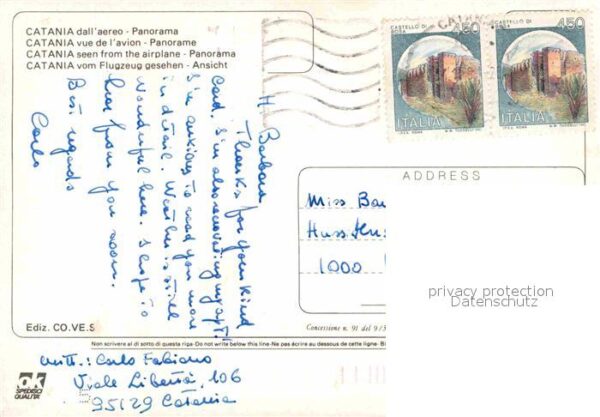 CATANIA dall'aereo - Panorama
CATANIA vue de l'avion - Panorame
CATANIA seen from the airplane - Panorama
CATANIA vom Flugzeug gesehen - Ansicht
CASTELLO DI
BOSA
450
ITALIA
CASTELLO DI
BOSA
450
ITALIA
Hi Barbara
Thanks for your kind
card. I'm also renovating my apt!
I'm anxious to read you more
in detail. Weather is still
wonderful here. I hope to
hear from you soon.
Best regards
Carlo
ADDRESS
Miss Bar
1000
privacy protection
Datenschutz
Ediz. CO.VE.S
Concessione n. 91 del 9/3
Non scrivere al di sotto di questa riga-Do not write below this line-Ne pas écrire au dessous de cette ligne-B
mitt.: Carlo Fabiano
Viale Libertà, 106
95129 Catania
SPEDISCI
QUALITA'